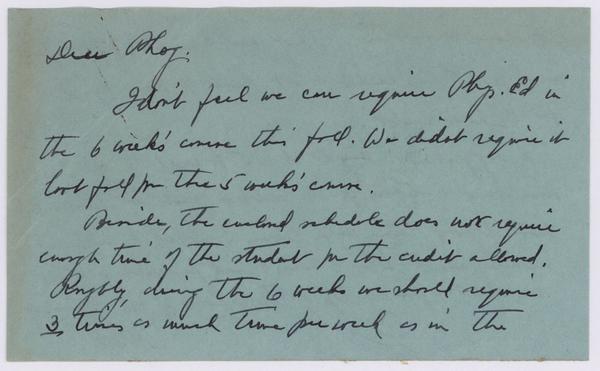 Dear Phog,
I don't feel we can require Phys. Ed in
the 6 week's course this fall. We didn't require it
last fall for the 5 week's course.
Beside, the enclosed schedule does not require
enough time of the student for the credit allowed.
Roughly, during the 6 weeks we should require
3 times as much time per week as in the